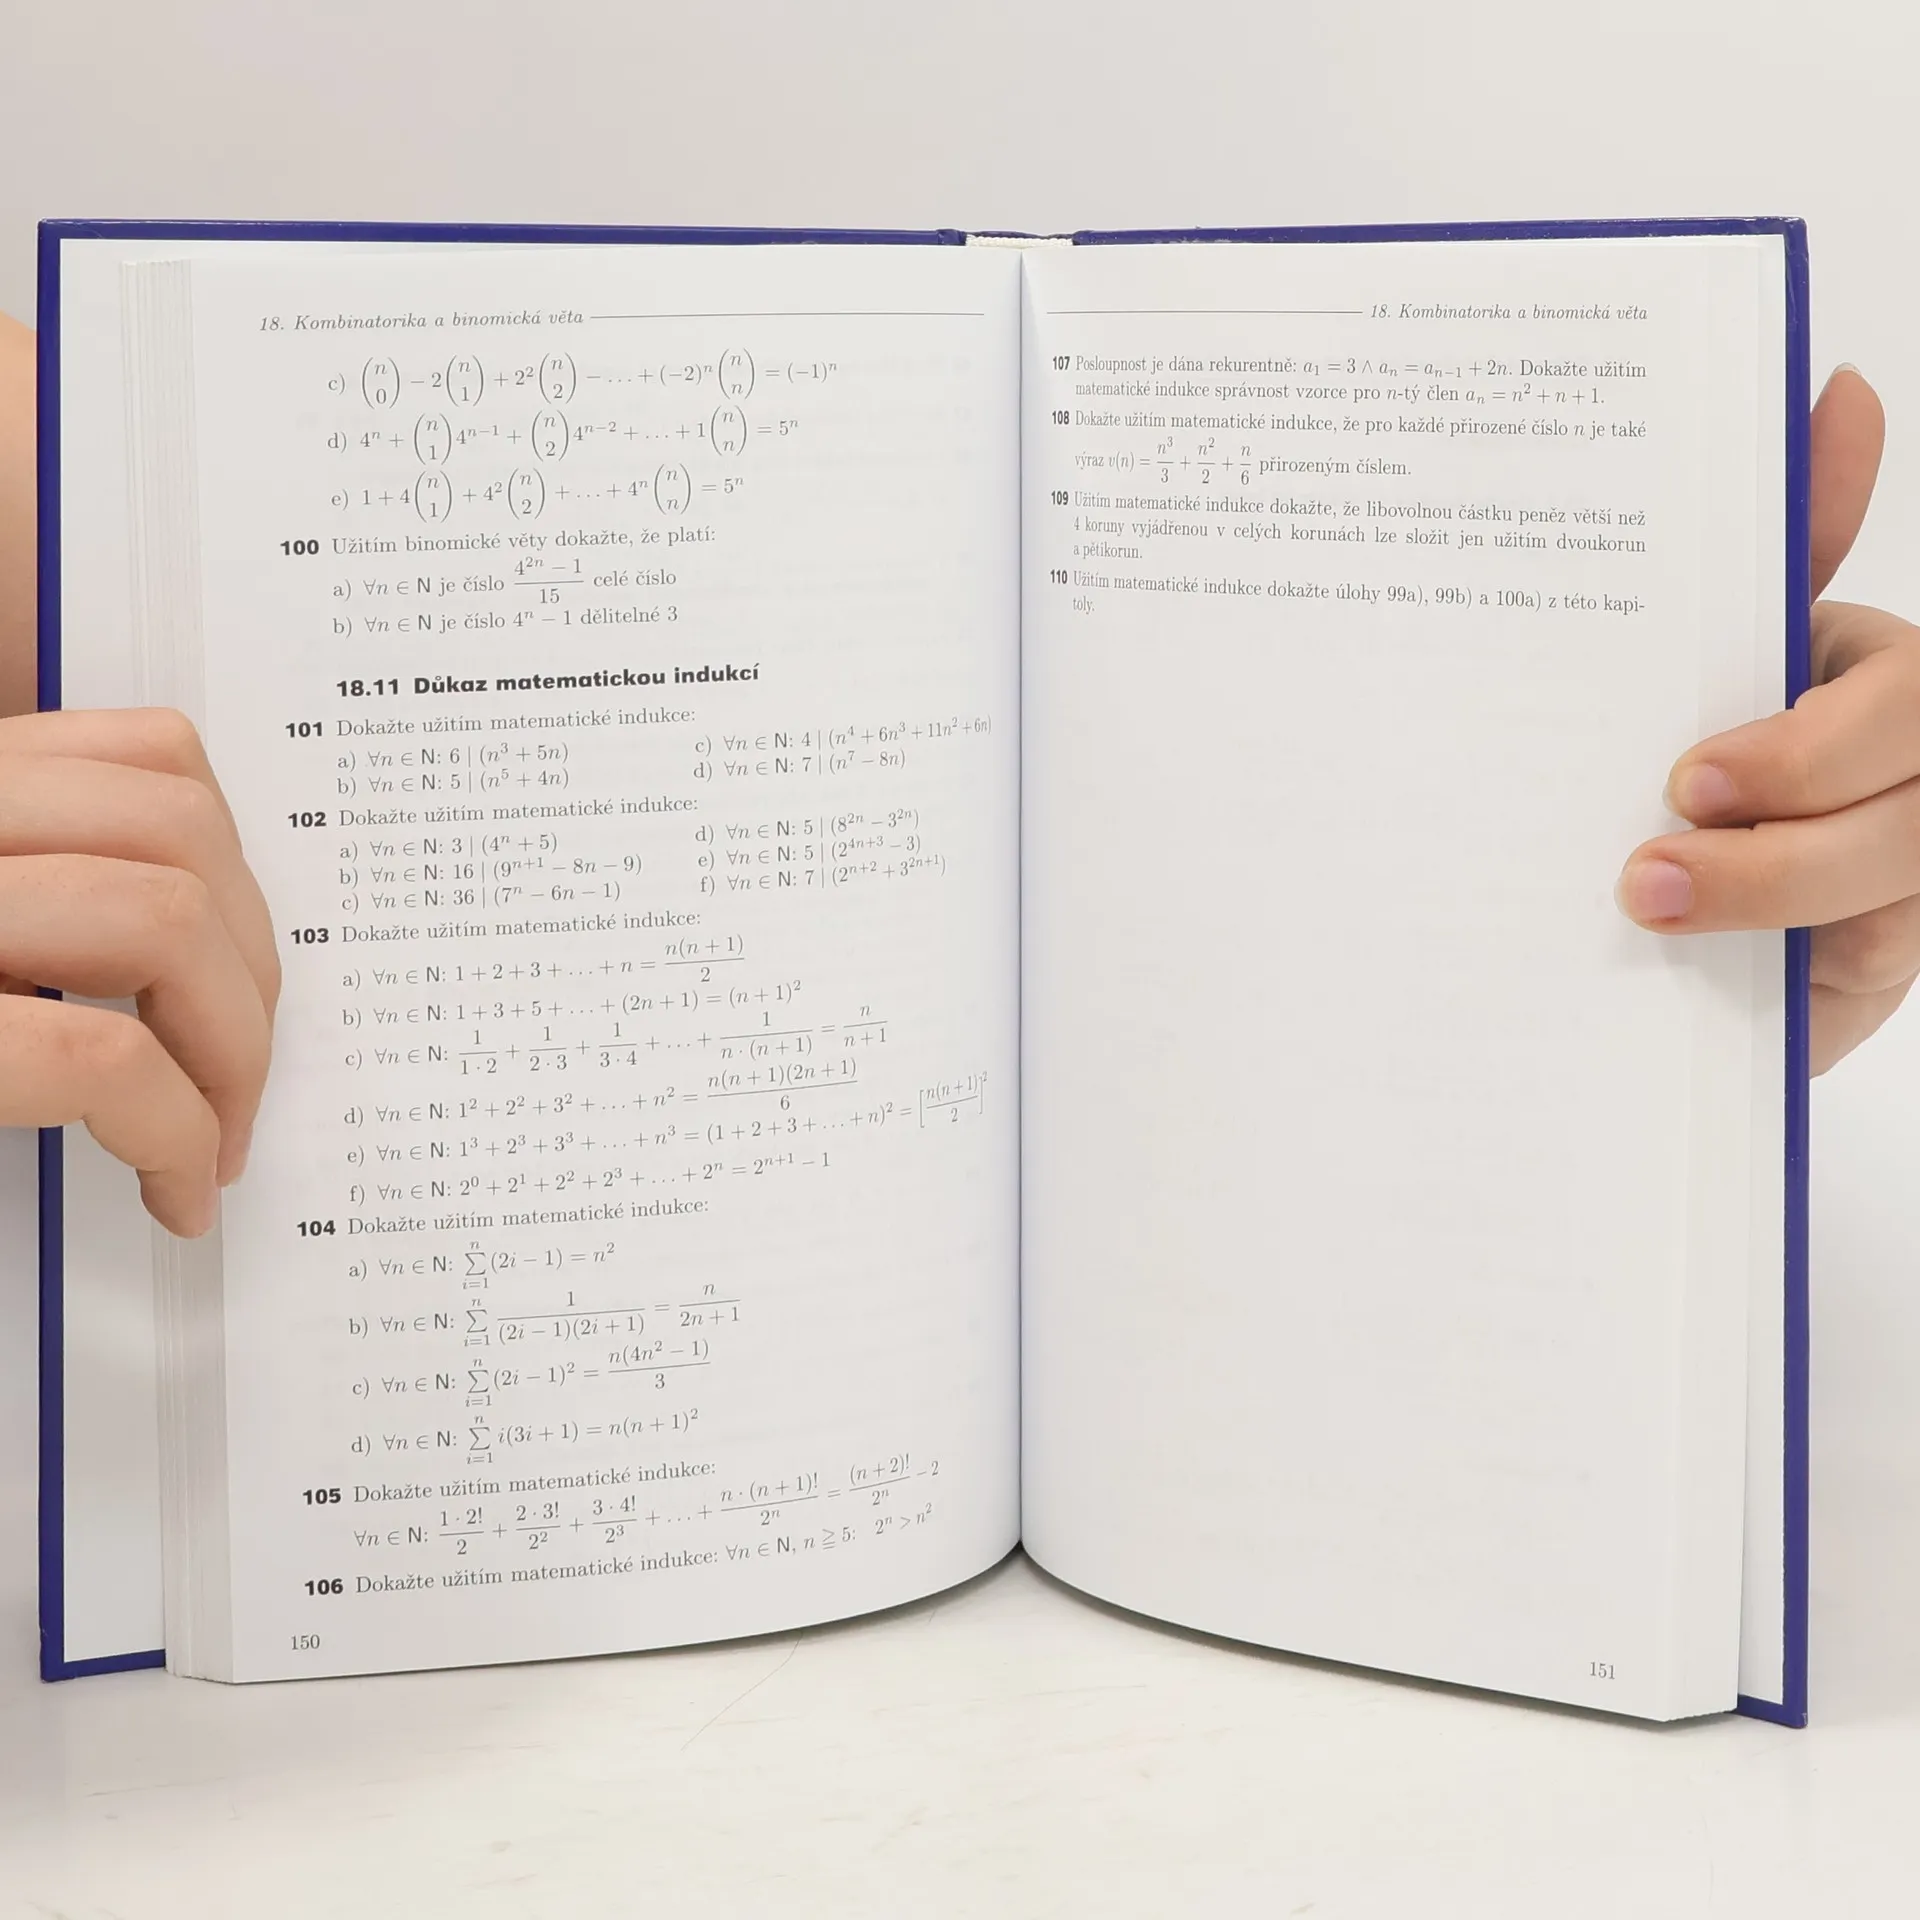 18. Kombinatorika a binomická věta
c) \binom{n}{0} − 2\binom{n}{1} + 2²\binom{n}{2} − … + (−2)ⁿ\binom{n}{n} = (−1)ⁿ
d) 4ⁿ + \binom{n}{1}4ⁿ⁻¹ + \binom{n}{2}4ⁿ⁻² + … + 1\binom{n}{n} = 5ⁿ
e) 1 + 4\binom{n}{1} + 4²\binom{n}{2} + … + 4ⁿ\binom{n}{n} = 5ⁿ
100 Užitím binomické věty dokažte, že platí:
a) ∀n ∈ N je číslo \frac{4^{2n} − 1}{15} celé číslo
b) ∀n ∈ N je číslo 4ⁿ − 1 dělitelné 3
18.11 Důkaz matematickou indukcí
101 Dokažte užitím matematické indukce:
a) ∀n ∈ N: 6 | (n³ + 5n)
b) ∀n ∈ N: 5 | (n⁵ + 4n)
c) ∀n ∈ N: 4 | (n⁴ + 6n³ + 11n² + 6n)
d) ∀n ∈ N: 7 | (n⁷ − 8n)
102 Dokažte užitím matematické indukce:
a) ∀n ∈ N: 3 | (4ⁿ + 5)
b) ∀n ∈ N: 16 | (9ⁿ⁺¹ − 8n − 9)
c) ∀n ∈ N: 36 | (7ⁿ − 6n − 1)
d) ∀n ∈ N: 5 | (8²ⁿ − 3²ⁿ)
e) ∀n ∈ N: 5 | (2⁴ⁿ⁺³ − 3)
f) ∀n ∈ N: 7 | (2ⁿ⁺² + 3²ⁿ⁺¹)
103 Dokažte užitím matematické indukce:
a) ∀n ∈ N: 1 + 2 + 3 + … + n = \frac{n(n + 1)}{2}
b) ∀n ∈ N: 1 + 3 + 5 + … + (2n + 1) = (n + 1)²
c) ∀n ∈ N: \frac{1}{1 · 2} + \frac{1}{2 · 3} + \frac{1}{3 · 4} + … + \frac{1}{n · (n + 1)} = \frac{n}{n + 1}
d) ∀n ∈ N: 1² + 2² + 3² + … + n² = \frac{n(n + 1)(2n + 1)}{6}
e) ∀n ∈ N: 1³ + 2³ + 3³ + … + n³ = (1 + 2 + 3 + … + n)² = [\frac{n(n + 1)}{2}]²
f) ∀n ∈ N: 2⁰ + 2¹ + 2² + 2³ + … + 2ⁿ = 2ⁿ⁺¹ − 1
104 Dokažte užitím matematické indukce:
a) ∀n ∈ N: \sum_{i=1}^{n} (2i − 1) = n²
b) ∀n ∈ N: \sum_{i=1}^{n} \frac{1}{(2i − 1)(2i + 1)} = \frac{n}{2n + 1}
c) ∀n ∈ N: \sum_{i=1}^{n} (2i − 1)² = \frac{n(4n² − 1)}{3}
d) ∀n ∈ N: \sum_{i=1}^{n} i(3i + 1) = n(n + 1)²
105 Dokažte užitím matematické indukce:
∀n ∈ N: \frac{1 · 2!}{2} + \frac{2 · 3!}{2²} + \frac{3 · 4!}{2³} + … + \frac{n · (n + 1)!}{2ⁿ} = \frac{(n + 2)!}{2ⁿ} − 2
106 Dokažte užitím matematické indukce: ∀n ∈ N, n ≧ 5: 2ⁿ > n²
150
18. Kombinatorika a binomická věta
107 Posloupnost je dána rekurentně: a₁ = 3 ∧ aₙ = aₙ₋₁ + 2n. Dokažte užitím
matematické indukce správnost vzorce pro n-tý člen aₙ = n² + n + 1.
108 Dokažte užitím matematické indukce, že pro každé přirozené číslo n je také
výraz v(n) = \frac{n³}{3} + \frac{n²}{2} + \frac{n}{6} přirozeným číslem.
109 Užitím matematické indukce dokažte, že libovolnou částku peněz větší než
4 koruny vyjádřenou v celých korunách lze složit jen užitím dvoukorun
a pětikorun.
110 Užitím matematické indukce dokažte úlohy 99a), 99b) a 100a) z této kapi-
toly.
151